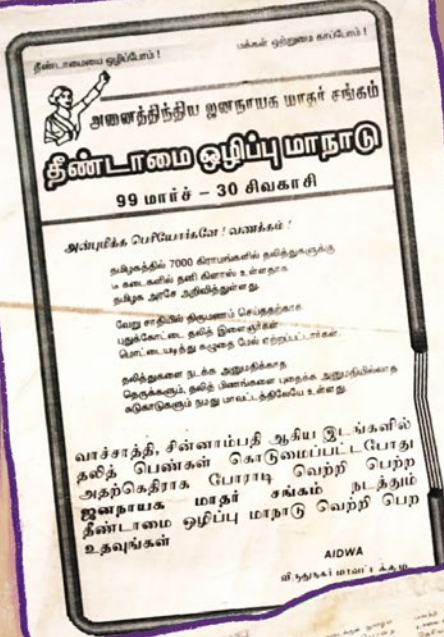 தீண்டாமையை ஒழிப்போம் !
மக்கள் ஒற்றுமை காப்போம் !
அனைத்திந்திய ஜனநாயக மாதர் சங்கம்
தீண்டாமை ஒழிப்பு மாநாடு
99 மார்ச் – 30 சிவகாசி
அன்புமிக்க பெரியோர்களே ! வணக்கம் !
தமிழகத்தில் 7000 கிராமங்களில் தலித்துகளுக்கு
டீ கடைகளில் தனி கிளாஸ் உள்ளதாக
தமிழக அரசே அறிவித்துள்ளது.
வேறு சாதியில் திருமணம் செய்ததற்காக
புதுக்கோட்டை தலித் இளைஞர்கள்
மொட்டையடித்து கழுதை மேல் ஏற்றப்பட்டார்கள்.
தலித்துகளை நடக்க அனுமதிக்காத
தெருக்களும், தலித் பிணங்களை புதைக்க அனுமதியில்லாத
சுடுகாடுகளும் நமது மாவட்டத்திலேயே உள்ளது.
வாச்சாத்தி, சின்னாம்பதி ஆகிய இடங்களில்
தலித் பெண்கள் கொடுமைப்பட்டபோது
அதற்கெதிராக போராடி வெற்றி பெற்ற
ஜனநாயக மாதர் சங்கம் நடத்தும்
தீண்டாமை ஒழிப்பு மாநாடு வெற்றி பெற
உதவுங்கள்
AIDWA
விருதுநகர் மாவட்டக்குழு